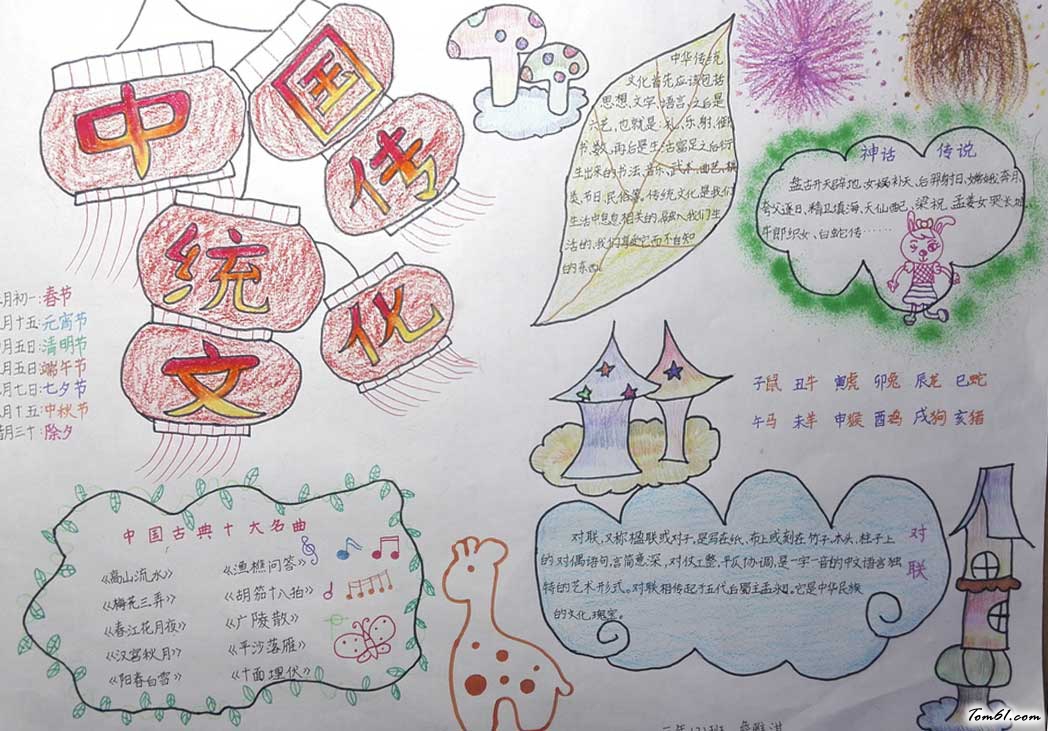 中国传统文化
月初一:春节
月十五:元宵节
月五日:清明节
月五日:端午节
月七日:七夕节
月十五:中秋节
月三十:除夕
中华传统
文化首先应该包括
思想、文字、语言、之后是
六艺,也就是:礼、乐、射、御
书、数,再后是生活富足之后衍
生出来的书法、音乐、武术、曲艺、棋
类、节日、民俗等。传统文化是我们
生活中息息相关的,融入我们生
活的,我们享受它而不自知
的东西。
神话 传说
盘古开天辟地、女娲补天、后羿射日、嫦娥奔月、
夸父逐日、精卫填海、天仙配、梁祝、孟姜女哭长城
牛郎织女、白蛇传……
子鼠 丑牛 寅虎 卯兔 辰龙 巳蛇
午马 未羊 申猴 酉鸡 戌狗 亥猪
中国古典十大名曲
《高山流水》 《渔樵问答》
《梅花三弄》 《胡笳十八拍》
《春江花月夜》 《广陵散》
《汉宫秋月》 《平沙落雁》
《阳春白雪》 《十面埋伏》
对联
对联,又称楹联或对子,是写在纸、布上或刻在竹子、木头、柱子上
的对偶语句,言简意深,对仗工整,平仄协调,是一字一音的中文语言独
特的艺术形式。对联相传起于五代后蜀主孟昶。它是中华民族
的文化瑰宝。
Tom61.com